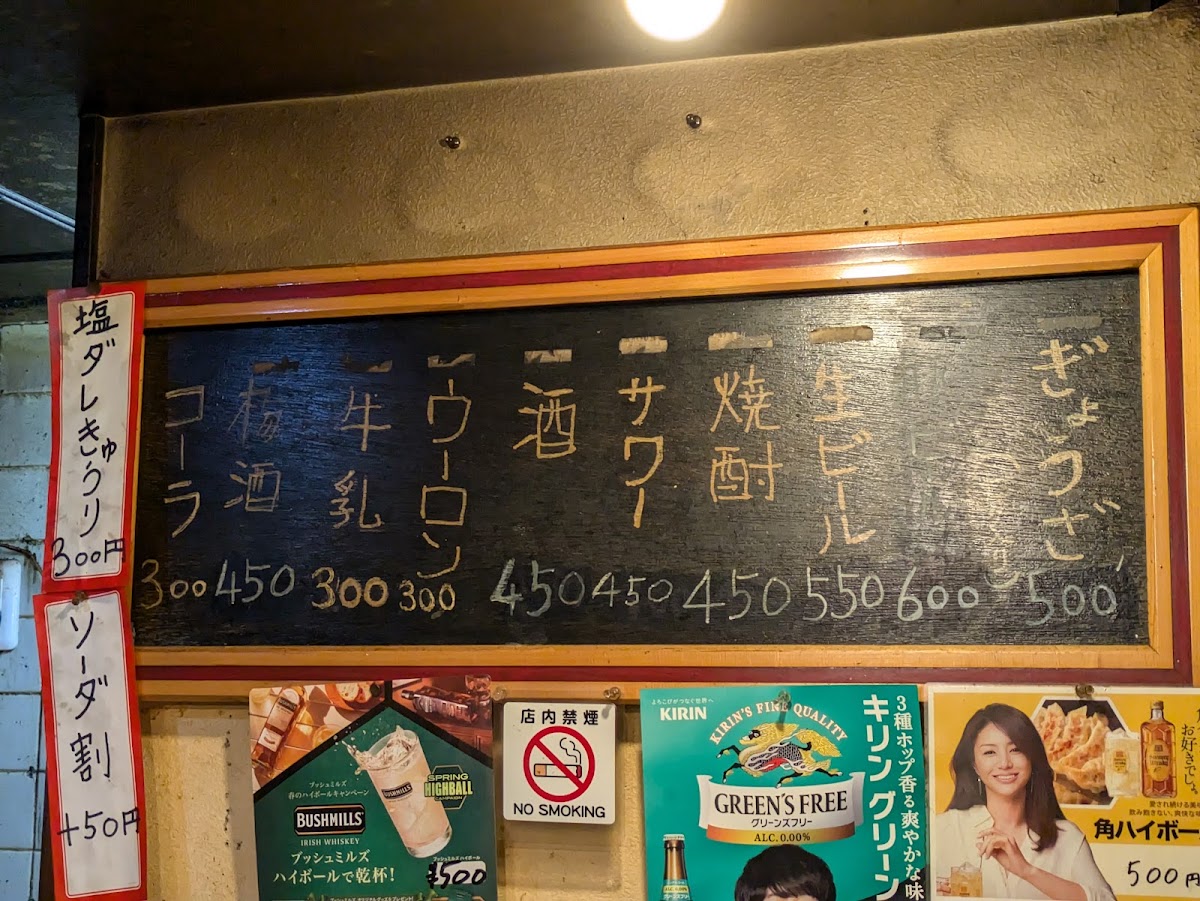 ぎょうざ
500
600
生ビール
550
焼酎
450
サワー
450
酒
450
ウーロン
300
牛乳
300
梅酒
450
コーラ
300
塩ダレきゅうり
300円
ソーダ割
+50円
ブッシュミルズ
春のハイボールキャンペーン
SPRING
HIGHBALL
CAMPAIGN
BUSHMILLS
BUSHMILLS
IRISH WHISKEY
ブッシュミルズ
ハイボールで乾杯!
ブッシュミルズ ハイボール
¥500
店内禁煙
NO SMOKING
よろこびがつなぐ世界へ
KIRIN
KIRIN'S FINE QUALITY
GREEN'S FREE
グリーンズフリー
ALC.0.00%
3種ホップ香る爽やかな味
キリン グリーン
お好きでしょ
角ハイボー
500円